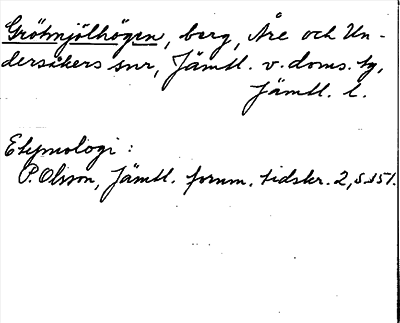 Grötmjölhögen, berg, Åre och Un-
dersåkers snr, Jämtl. v. doms. tg,
Jämtl. l.
Etymologi:
P. Olsson, Jämtl. fornm. tidskr. 2, s. 151.